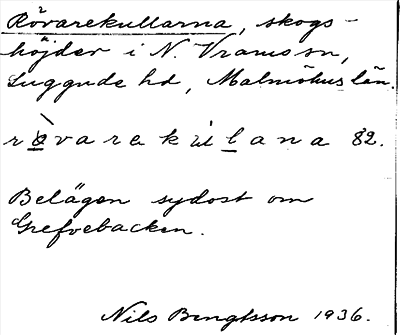 Rövarekullarna, skogs-
höjder i N. Vrams sn,
Luggude hd, Malmöhus län.
82.
Belägen sydost om
Grefvebacken.
Nils Bengtsson 1936.